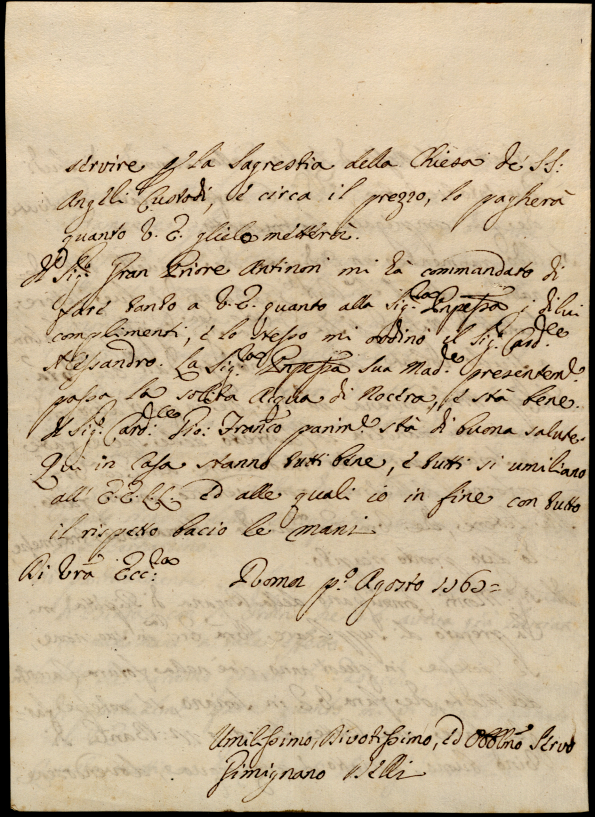 servire p la Sagrestia della Chiesa de' SS:
Angeli Custodi, e circa il prezzo, lo pagherà
quanto V. E. glielo metterà.
Il Sig.r Gran Priore Antinori mi hà commandato di
fare tanto a V. E. quanto alla Sig.ra Pnpessa i di lui
complimenti, e lo stesso mi ordinò il Sig.r Card.le
Alessandro. La Sig.ra Pnpessa sua Mad.e presentem.e
passa la solita Acqua di Nocera, e stà bene.
Il Sig.r Card.le Gio: Franc.o parim.e stà di buona salute.
Qui in Casa stanno tutti bene, e tutti si umiliano
all' E. E. LL. ed alle quali io in fine con tutto
il rispetto bacio le mani
Di Vrã Ecc.za
Roma p.o Agosto 1763=
Umilissimo, Divotissimo, ed Obblmo Servo
Gimignano